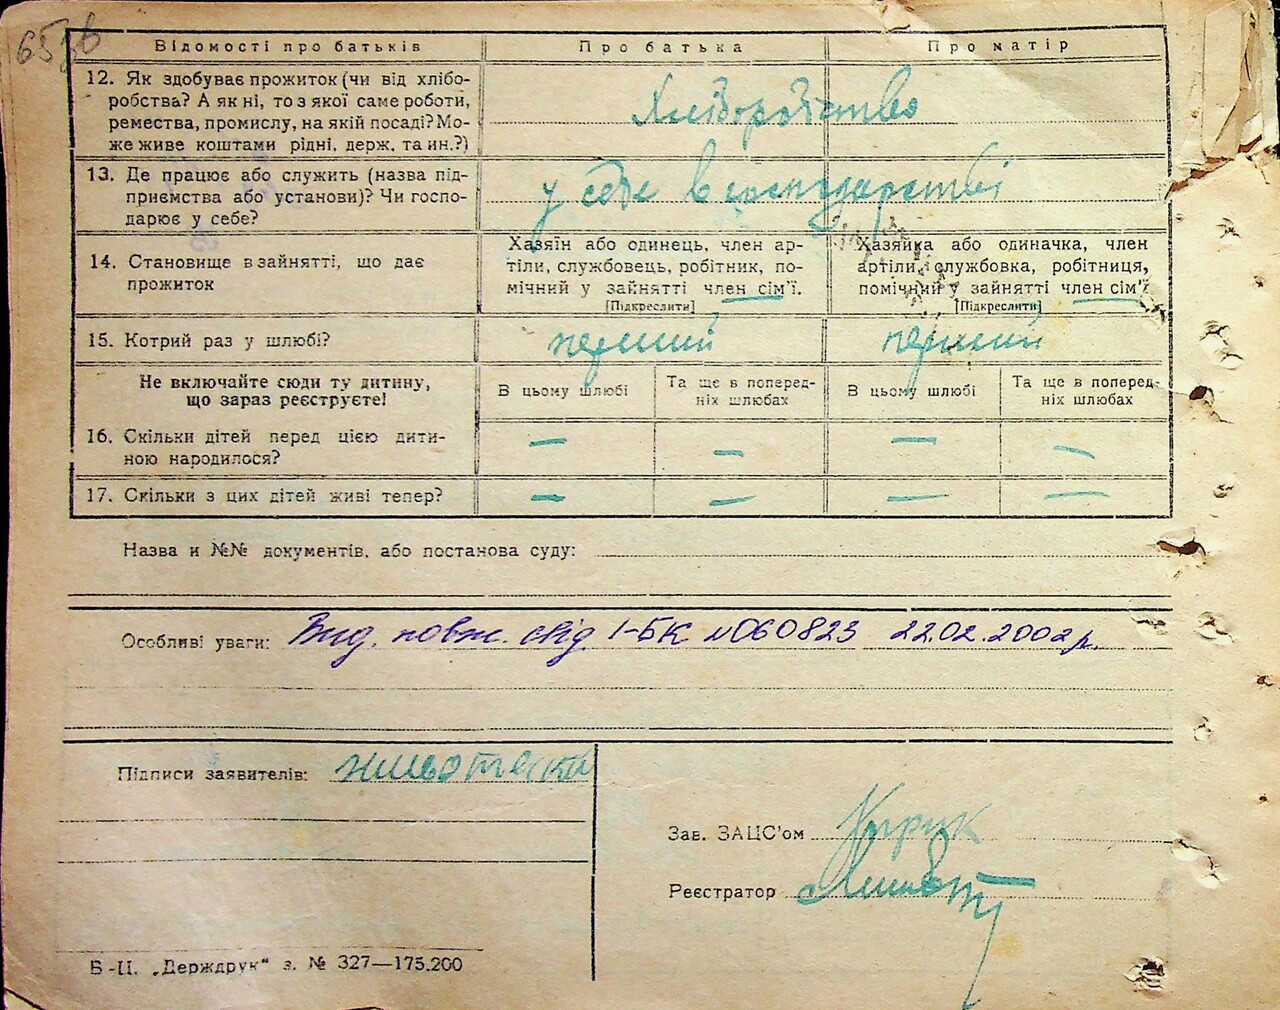 65зв
Відомості про батьків Про батька Про матір
12. Як здобуває прожиток (чи від хлібо-
робства? А як ні, то з якої саме роботи,
ремества, промислу, на якій посаді? Мо-
же живе коштами рідні, держ. та ин.?)
Хліборобство
13. Де працює або служить (назва під-
приємства або установи)? Чи госпо-
дарює у себе?
у себе в господарстві
14. Становище в зайнятті, що дає
прожиток
Хазяїн або одинець, член ар-
тіли, службовець, робітник, по-
мічний у зайнятті член сім'ї.
[Підкреслити]
Хазяйка або одиначка, член
артіли, службовка, робітниця,
помічний у зайнятті член сім'ї
[Підкреслити]
15. Котрий раз у шлюбі? перший перший
Не включайте сюди ту дитину,
що зараз реєструєте!
В цьому шлюбі
Та ще в поперед-
ніх шлюбах
В цьому шлюбі
Та ще в поперед-
ніх шлюбах
16. Скільки дітей перед цією дити-
ною народилося?
— — — —
17. Скільки з цих дітей живі тепер? — — — —
Назва и №№ документів, або постанова суду:
Особливі уваги: Вид. повт. свід. 1-БК №060823 22.02.2002р.
Підписи заявителів:
Зав. ЗАЦС'ом
Реєстратор
Б-Ц. „Держдрук" з. № 327—175.200